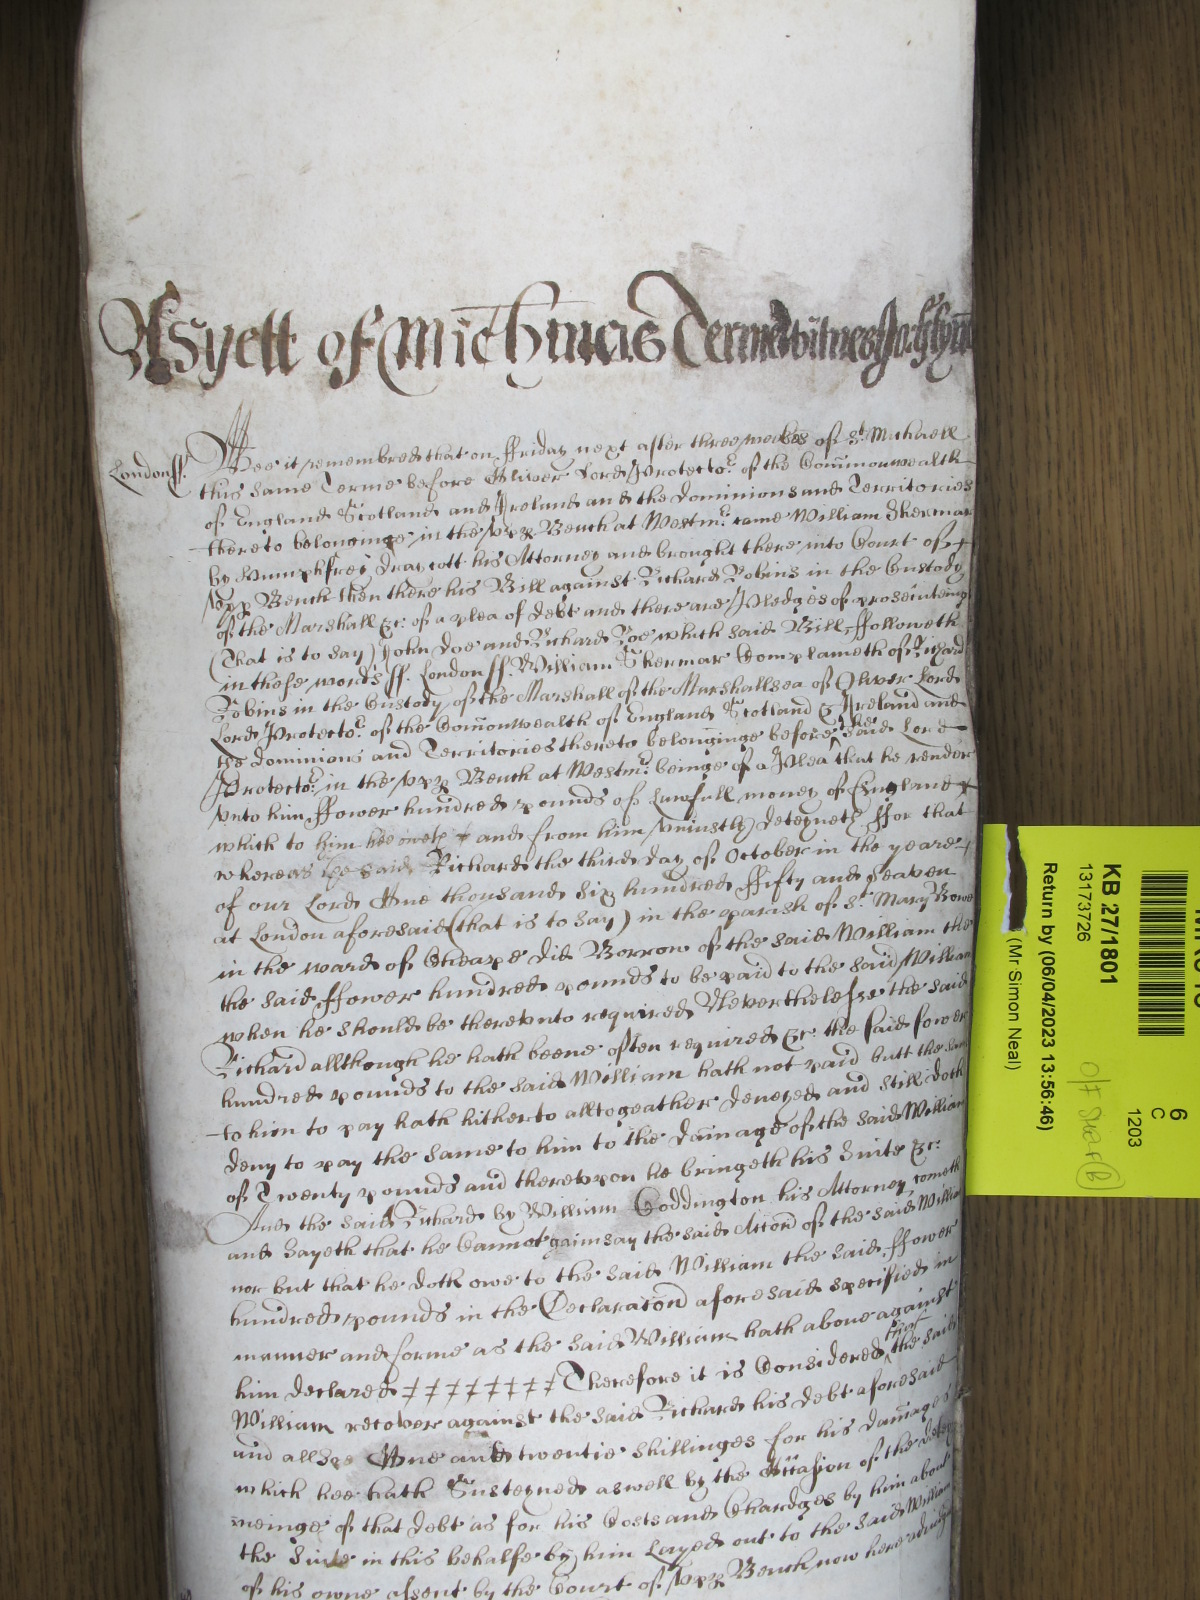 As yett of Michmas Terme Witnes
London ss. Bee it remembred that on ffriday next after three weekes of St. Michaell
this same Terme before Oliver Lord Protector of the Commonwealth
of England Scotland and Ireland and the dominions and Territories
thereto belonginge in the Upp Bench at Westmr. came William Skerman
by Humphfrey Draycott his Attorney and brought there into Court of
Upp Bench then there his Bill against Richard Robins in the Custody
of the Marshall &c: of a plea of debt and there are Pledges of prosecuteing
(That is to say) John Doe and Richard Roe which said Bill ffolloweth
in these words ss. London ss. William Skerman Complaineth of Richard
Robins in the Custody of the Marshall of the Marshallsea of Oliver Lord
Lord Protector. of the Comonwealth of England Scotland & Ireland and
the dominions and Territories thereto belonginge before the said Lord
Protector. in the Upp Bench at Westmr. beinge of a Plea that he render
Unto him ffower hundred pounds of Lawfull money of England
which to him hee oweth and from him Uniustly deteyneth ffor that
whereas the said Richard the third day of October in the yeare
of our Lord One thousand six hundred ffifty and seaven
at London aforesaid (that is to say) in the parish of St. Mary Bowe
in the ward of Cheape did Borrow of the said William the
the said ffower hundred pounds to be paid to the said William
when he should be thereunto required Neverthelesse the said
Richard allthough he hath beene often required &c. the said fower
hundred pounds to the said William hath not paid butt the same
to him to pay hath hitherto alltogeather denyed and still doth
deny to pay the same to him to the damage of the said William
of Twenty pounds and thereupon he bringeth his Suite &c:
And the said Richard by William Coddington his Attorney cometh
and Sayeth that he Cannot gainsay the said Accon of the said William
nor but that he doth owe to the said William the said ffower
hundred pounds in the Declaracon aforesaid specified in
manner and forme as the said William hath above against
him declared Therefore it is Considered that the said
William recover against the said Richard his debt aforesaid
and allsoe One and twentie shillinges for his damages
which hee hath Susteyned aswell by the Occasion of the detey
neinge of that debt as for his Costs and Chardges by him about
the Suite in this behalfe by him Layed out to the said William
of his owne assent by the Court of Upp Bench now here adiudged
KB 27/1801
13173726
Return by (06/04/2023 13:56:46)
(Mr Simon Neal)
6
C
1203